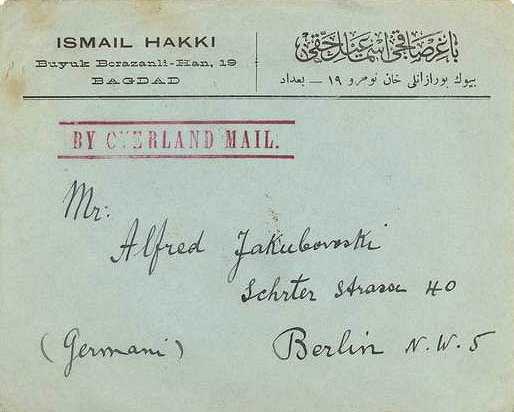 ISMAIL HAKKI
Buyuk Borazanli-Han, 19
BAGDAD
باغرصاقجی اسماعيل حقی
بيوك بورازانلی خان نومرو ١٩ — بغداد
BY OVERLAND MAIL.
Mr:
Alfred Jakubovoski
Schrter Strasse 40
(Germani)
Berlin N.W.5